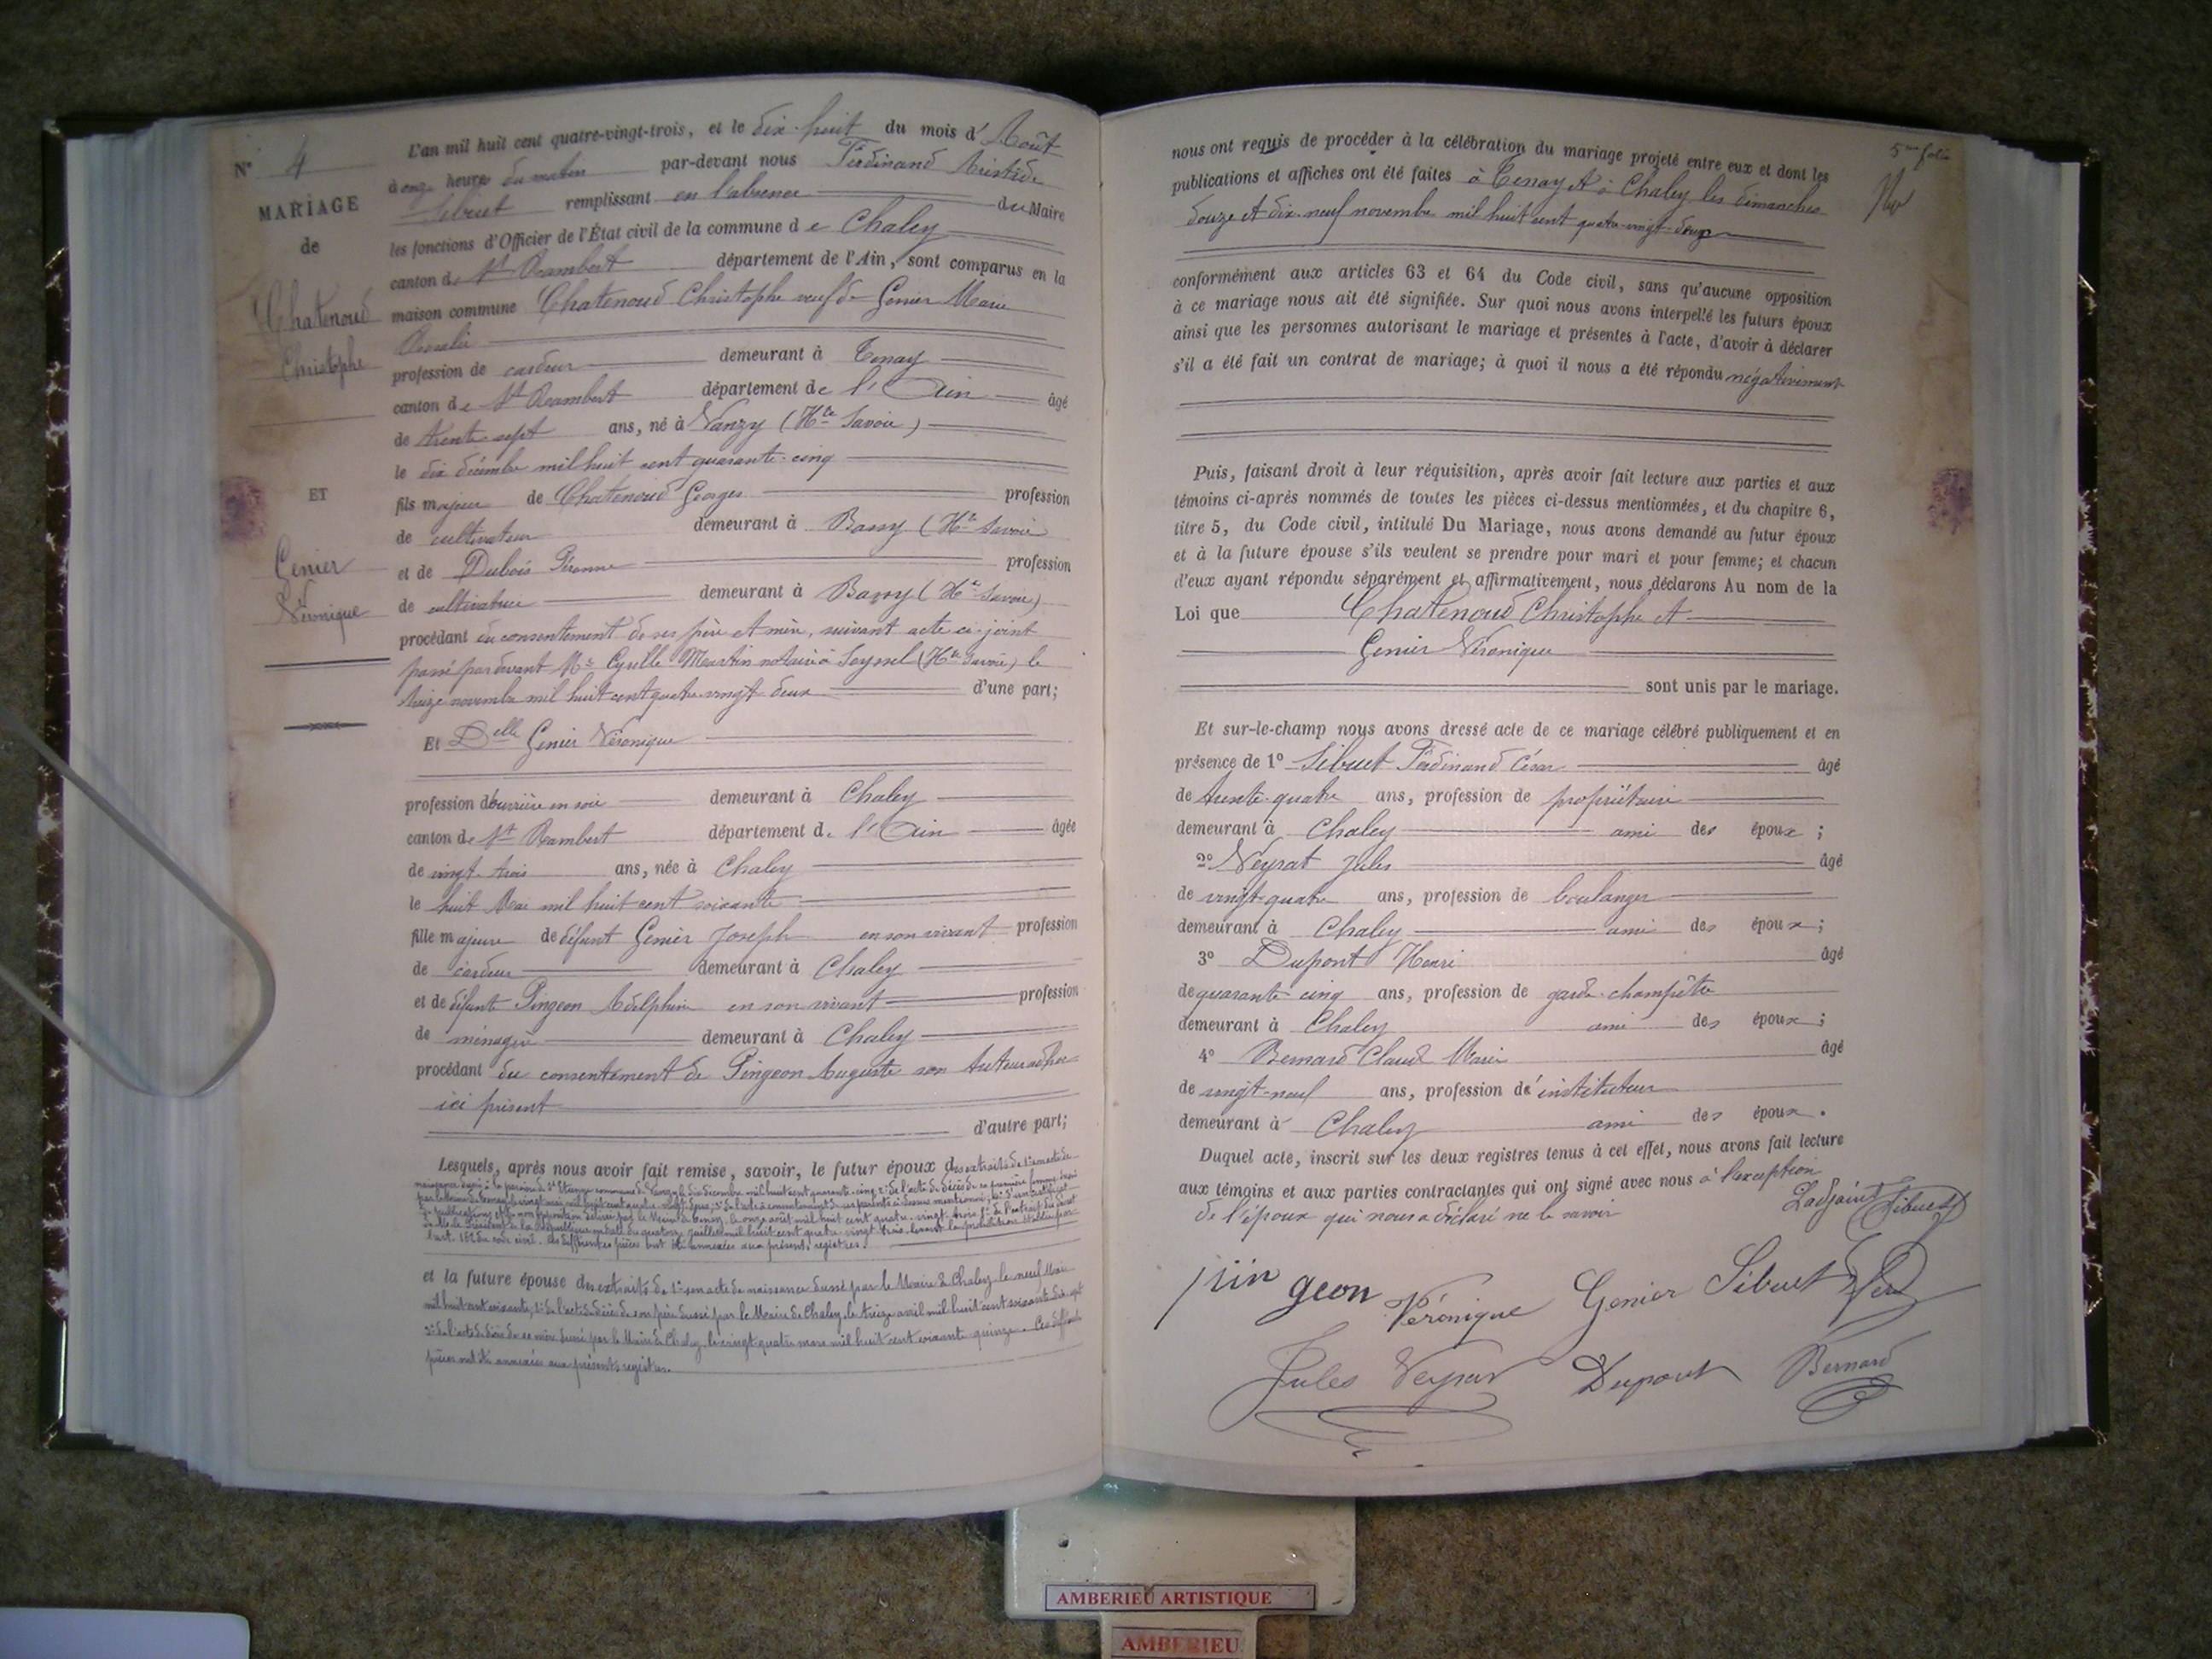 N° 4
MARIAGE
de
Chatenoud
Christophe
ET
Genier
Véronique
L'an mil huit cent quatre-vingt-trois, et le dix-huit du mois d'Août
à onze heures du matin par-devant nous Ferdinand Aristide
Sibuet remplissant en l'absence du Maire
les fonctions d'Officier de l'État civil de la commune de Chaley
canton de St Rambert département de l'Ain, sont comparus en la
maison commune Chatenoud Christophe veuf de Genier Marie
Rosalie
profession de cardeur demeurant à Tenay
canton de St Rambert département de l'Ain âgé
de trente sept ans, né à Vanzy (Hte Savoie)
le dix décembre mil huit cent quarante-cinq
fils majeur de Chatenoud Georges profession
de cultivateur demeurant à Bassy (Hte Savoie
et de Dubois Péronne profession
de cultivatrice demeurant à Bassy (Hte Savoie)
procédant du consentement de ses père et mère, suivant acte ci-joint
passé pardevant Me Cyrille Martin notaire à Seyssel (Hte Savoie) le
treize novembre mil huit cent quatre-vingt-deux d'une part;
Et Delle Genier Véronique
profession d'ouvrière en soie demeurant à Chaley
canton de St Rambert département de l'Ain âgée
de vingt-trois ans, née à Chaley
le huit Mai mil huit cent soixante
fille majeure de défunt Genier Joseph en son vivant profession
de cardeur demeurant à Chaley
et de défunte Pingeon Adelphine en son vivant profession
de ménagère demeurant à Chaley
procédant du consentement de Pingeon Auguste son tuteur ad hoc
ici présent
d'autre part;
Lesquels, après nous avoir fait remise, savoir, le futur époux des extraits de 1° son acte de
naissance le dix décembre mil huit cent quarante-cinq, 2° de l'acte de décès de sa première femme
l'art. 162 du code civil. Ces différentes pièces ont été annexées aux présents registres.
et la future épouse des extraits de 1° son acte de naissance dressé par le Maire de Chaley le neuf Mai
mil huit cent soixante, 2° de l'acte de décès de son père dressé par le Maire de Chaley, le treize avril mil huit cent soixante-dix-sept
3° de l'acte de décès de sa mère dressé par le Maire de Chaley, le vingt-quatre mars mil huit cent soixante quinze. Ces différentes
pièces ont été annexées aux présents registres.
5me folio
nous ont requis de procéder à la célébration du mariage projeté entre eux et dont les
publications et affiches ont été faites à Tenay et à Chaley les dimanches
douze et dix-neuf novembre mil huit cent quatre-vingt-deux
conformément aux articles 63 et 64 du Code civil, sans qu'aucune opposition
à ce mariage nous ait été signifiée. Sur quoi nous avons interpellé les futurs époux
ainsi que les personnes autorisant le mariage et présentes à l'acte, d'avoir à déclarer
s'il a été fait un contrat de mariage; à quoi il nous a été répondu négativement
Puis, faisant droit à leur réquisition, après avoir fait lecture aux parties et aux
témoins ci-après nommés de toutes les pièces ci-dessus mentionnées, et du chapitre 6,
titre 5, du Code civil, intitulé Du Mariage, nous avons demandé au futur époux
et à la future épouse s'ils veulent se prendre pour mari et pour femme; et chacun
d'eux ayant répondu séparément et affirmativement, nous déclarons Au nom de la
Loi que Chatenoud Christophe et
Genier Véronique
sont unis par le mariage.
Et sur-le-champ nous avons dressé acte de ce mariage célébré publiquement et en
présence de 1° Sibuet Ferdinand César âgé
de trente-quatre ans, profession de propriétaire
demeurant à Chaley ami des époux ;
2° Veyrat Jules âgé
de vingt-quatre ans, profession de boulanger
demeurant à Chaley ami des époux ;
3° Dupont Henri âgé
de quarante cinq ans, profession de garde-champêtre
demeurant à Chaley ami des époux ;
4° Bernard Claude Marie âgé
de vingt-neuf ans, profession d'instituteur
demeurant à Chaley ami des époux.
Duquel acte, inscrit sur les deux registres tenus à cet effet, nous avons fait lecture
aux témoins et aux parties contractantes qui ont signé avec nous à l'exception
de l'époux qui nous a déclaré ne le savoir
L'adjoint Sibuet
pin geon Véronique Genier Sibuet Ferd
Jules Veyrat Dupont Bernard
AMBERIEU ARTISTIQUE
AMBERIEU